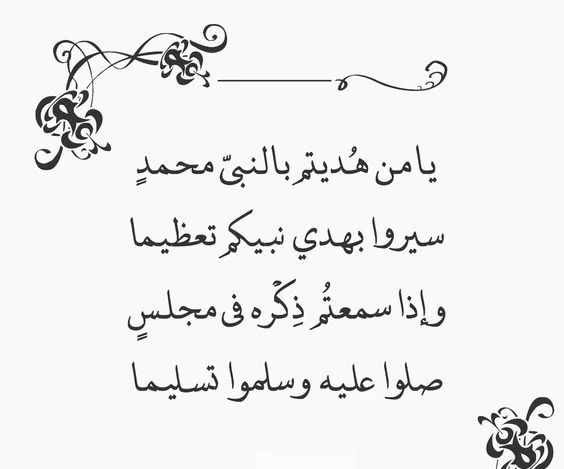 يا من هُديتم بالنبيّ محمدٍ
سيروا بهدي نبيكم تعظيما
وإذا سمعتُم ذِكْره في مجلسٍ
صلوا عليه وسلموا تسليما